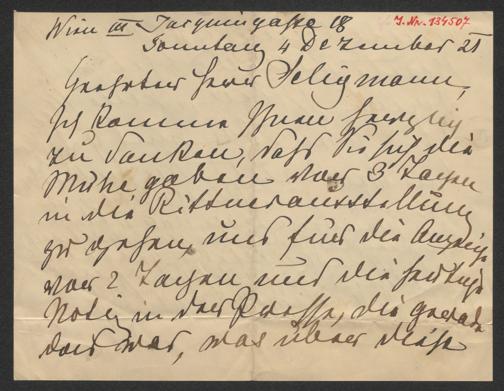 Wien III Jacquingasse 18
I.N. 134507
Sonntag 4 Dezember 21
Geehrter Herr Seligmann,
Ich komme Ihnen herzlich
zu danken, daß Sie sich die
Mühe gaben vor 3 Tagen
in die Rittnerausstellung
zu gehen, und für die Anzeige
vor 2 Tagen und die heutige
Notiz in der Presse, die gerade
das war, was über diese